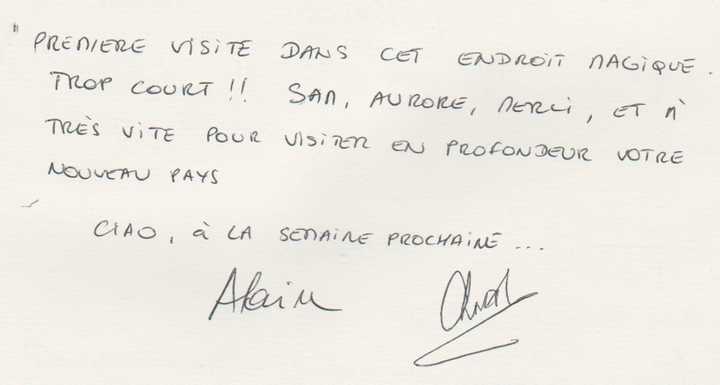 PREMIERE VISITE DANS CET ENDROIT MAGIQUE.
TROP COURT !! SAM, AURORE, MERCI, ET À
TRÈS VITE POUR VISITER EN PROFONDEUR VOTRE
NOUVEAU PAYS
CIAO, à LA SEMAINE PROCHAINE ...
Alain